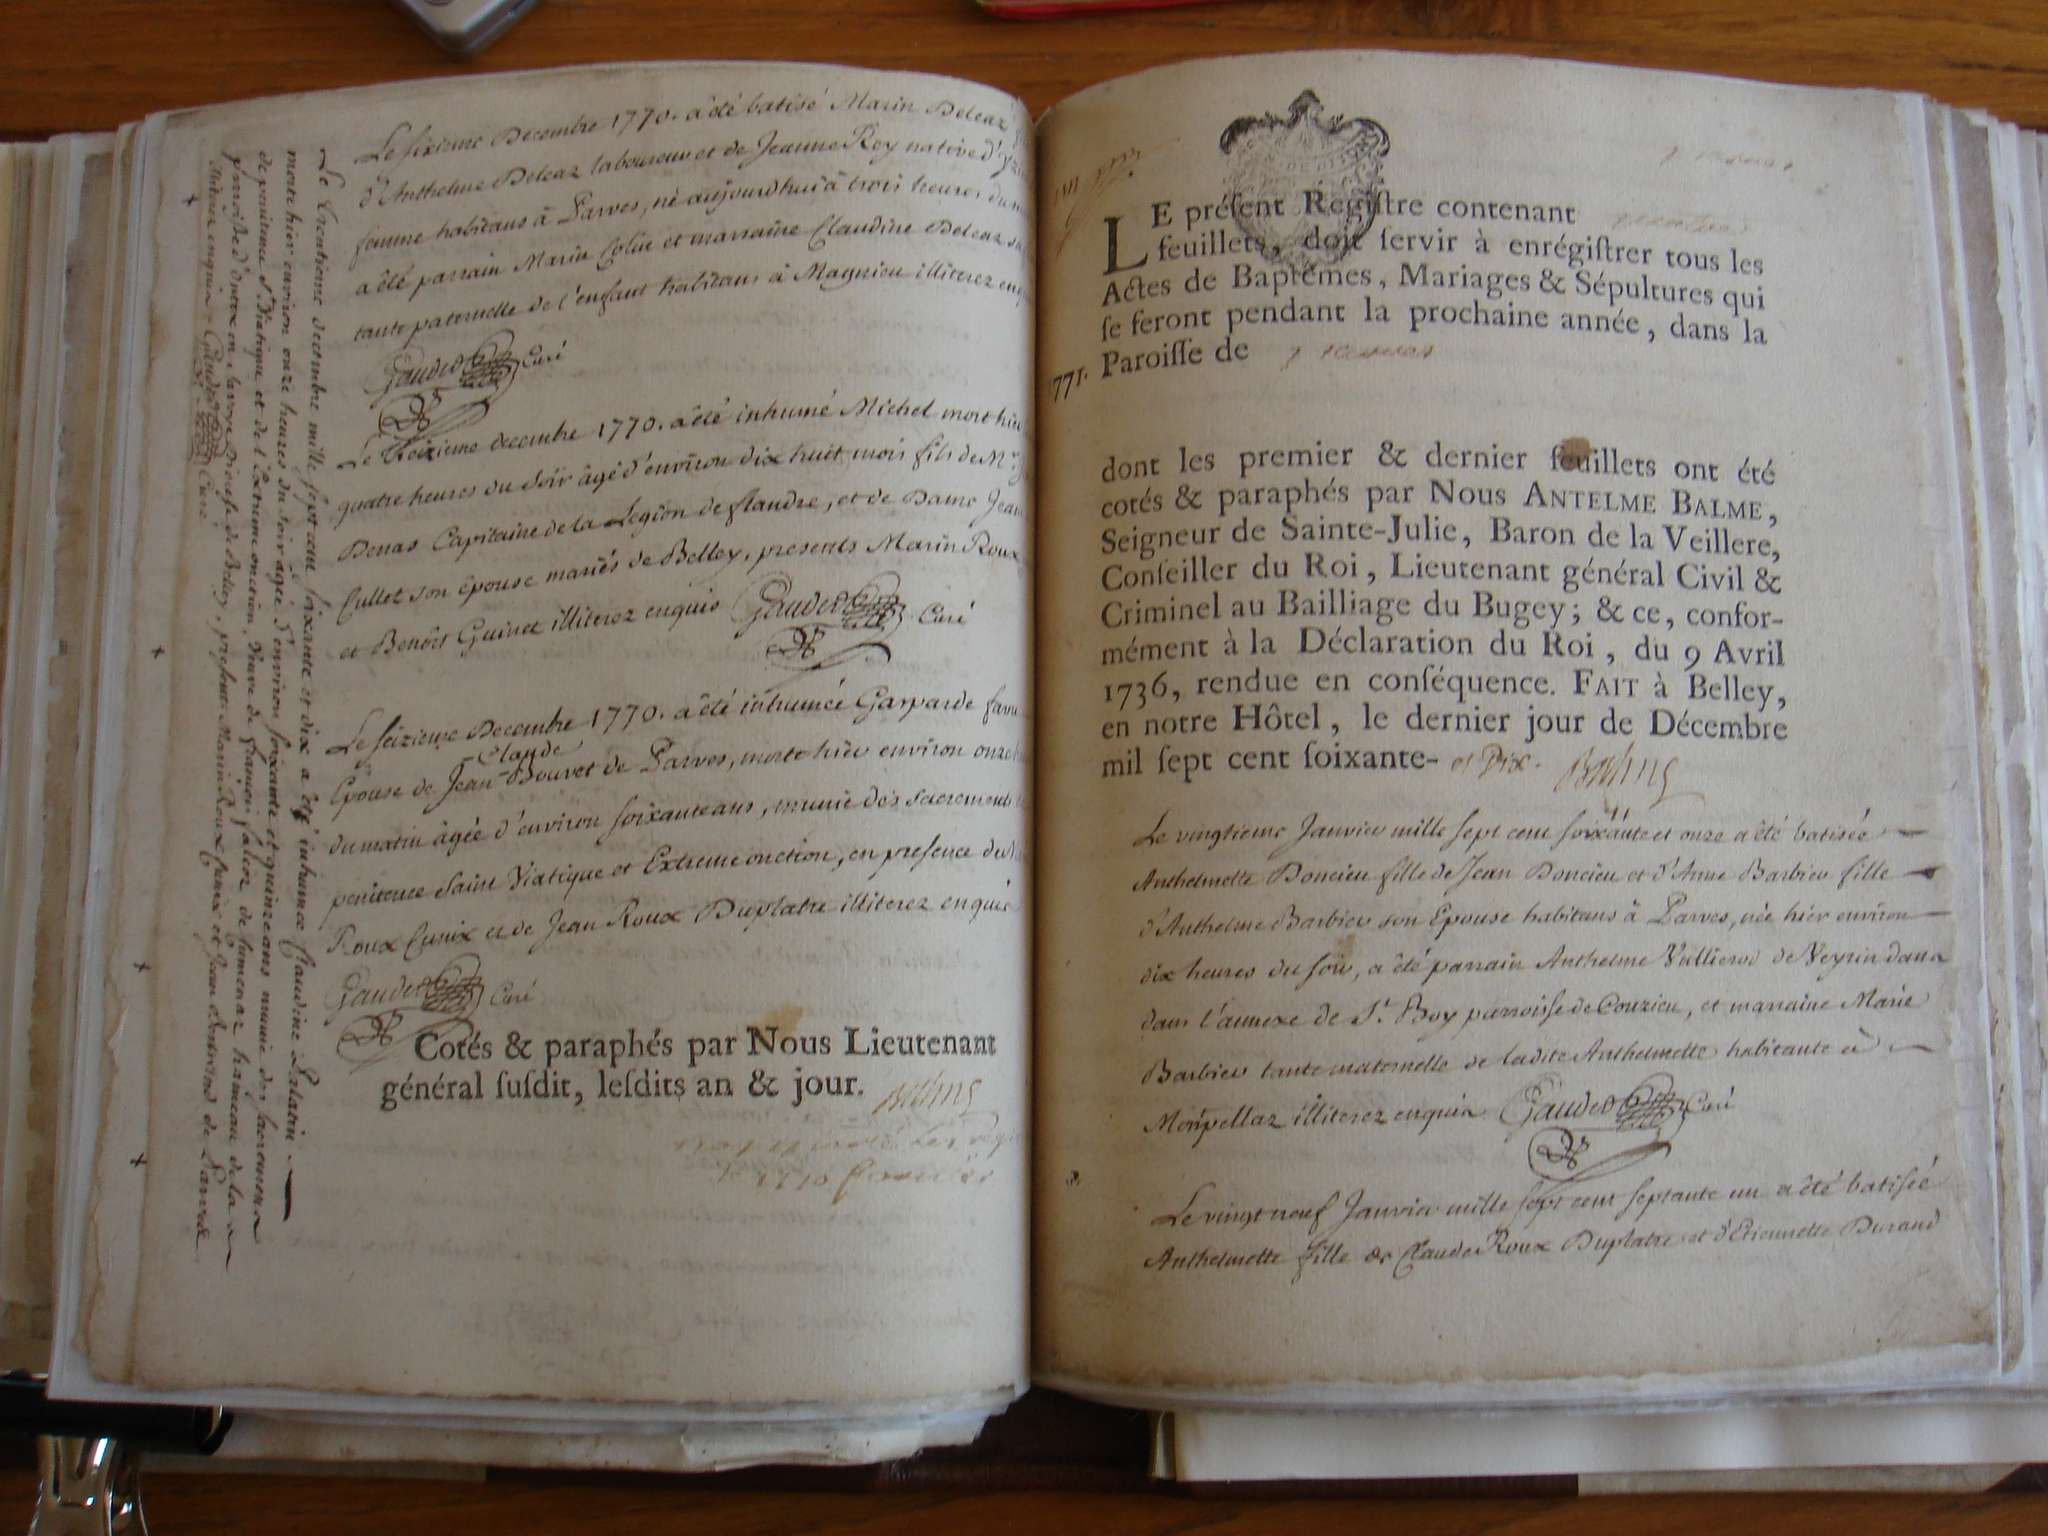 Le sixieme Decembre 1770. a été batisé Marin Beleaz
d'Anthelme Beleaz laboureur et de Jeanne Rey native d'
femme habitans à Parves, né aujourdhui à trois heures du
a été parrain Marin Colin et marraine Claudine Beleaz
tante paternelle de l'enfant habitans à Magnieu illiterez
Gaudet Curé
Le treizieme decembre 1770. a été inhumé Michel mort hier
quatre heures du soir âgé d'environ dix huit mois fils de Mr
Denas Capitaine de la Legion de flandre, et de Dame Jean
Cullet son épouse mariés de Belley, presents Marin Roux
et Benoit Guinet illiterez enquis Gaudet Curé
Le seizieme Decembre 1770. a été inhumée Gasparde favre
Claude
Epouse de Jean Bouvet de Parves, morte hier environ onze
du matin âgée d'environ soixante ans, munie des sacrements
penitence Saint Viatique et Extreme onction, en presence de
Roux Cunix et de Jean Roux Duplatre illiterez enquis
Gaudet Curé
Cotés & paraphés par Nous Lieutenant
général susdit, lesdits an & jour.
Le trentieme decembre mille sept cent soixante et dix a été inhumée Claudine Palatin
morte hier environ onze heures du soir agée d'environ soixante et quinze ans munie des sacremens
de penitence st Viatique et de l'Extreme onction, Veuve de françoi falcoz de Sumenaz hameau de la
parroisse d'Intex en Savoye Diocese de Belley, presents Marin Roux Cunix et Jean de Parves
illiterez enquis Gaudet Curé
LE présent Régistre contenant
feuillets, doit servir à enrégistrer tous les
Actes de Baptêmes, Mariages & Sépultures qui
se feront pendant la prochaine année, dans la
Paroisse de
771.
dont les premier & dernier feuillets ont été
cotés & paraphés par Nous ANTELME BALME,
Seigneur de Sainte-Julie, Baron de la Veillere,
Conseiller du Roi, Lieutenant général Civil &
Criminel au Bailliage du Bugey; & ce, confor-
mément à la Déclaration du Roi, du 9 Avril
1736, rendue en conséquence. FAIT à Belley,
en notre Hôtel, le dernier jour de Décembre
mil sept cent soixante- et Dix.
Le vingtieme Janvier mille sept cent soixante et onze a été batisée
Anthelmette Doncieu fille de Jean Doncieu et d'Anne Barbier fille
d'Anthelme Barbier son Epouse habitans à Parves, née hier environ
dix heures du soir, a été parrain Anthelme Vullierod de Neyrin dans
dans l'annexe de St Boy parroisse de Couzieu, et marraine Marie
Barbier tante maternelle de ladite Anthelmette habitante à
Monpellaz illiterez enquis Gaudet Curé
2.
Le vingt neuf Janvier mille sept cent septante un a été batisée
Anthelmette fille de Claude Roux Duplatre et d'Etiennette Durand